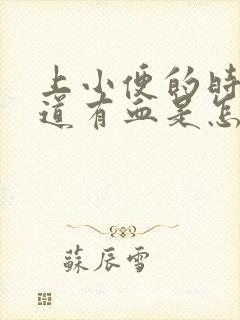 上小便的时
道有血是怎
蘇辰雪